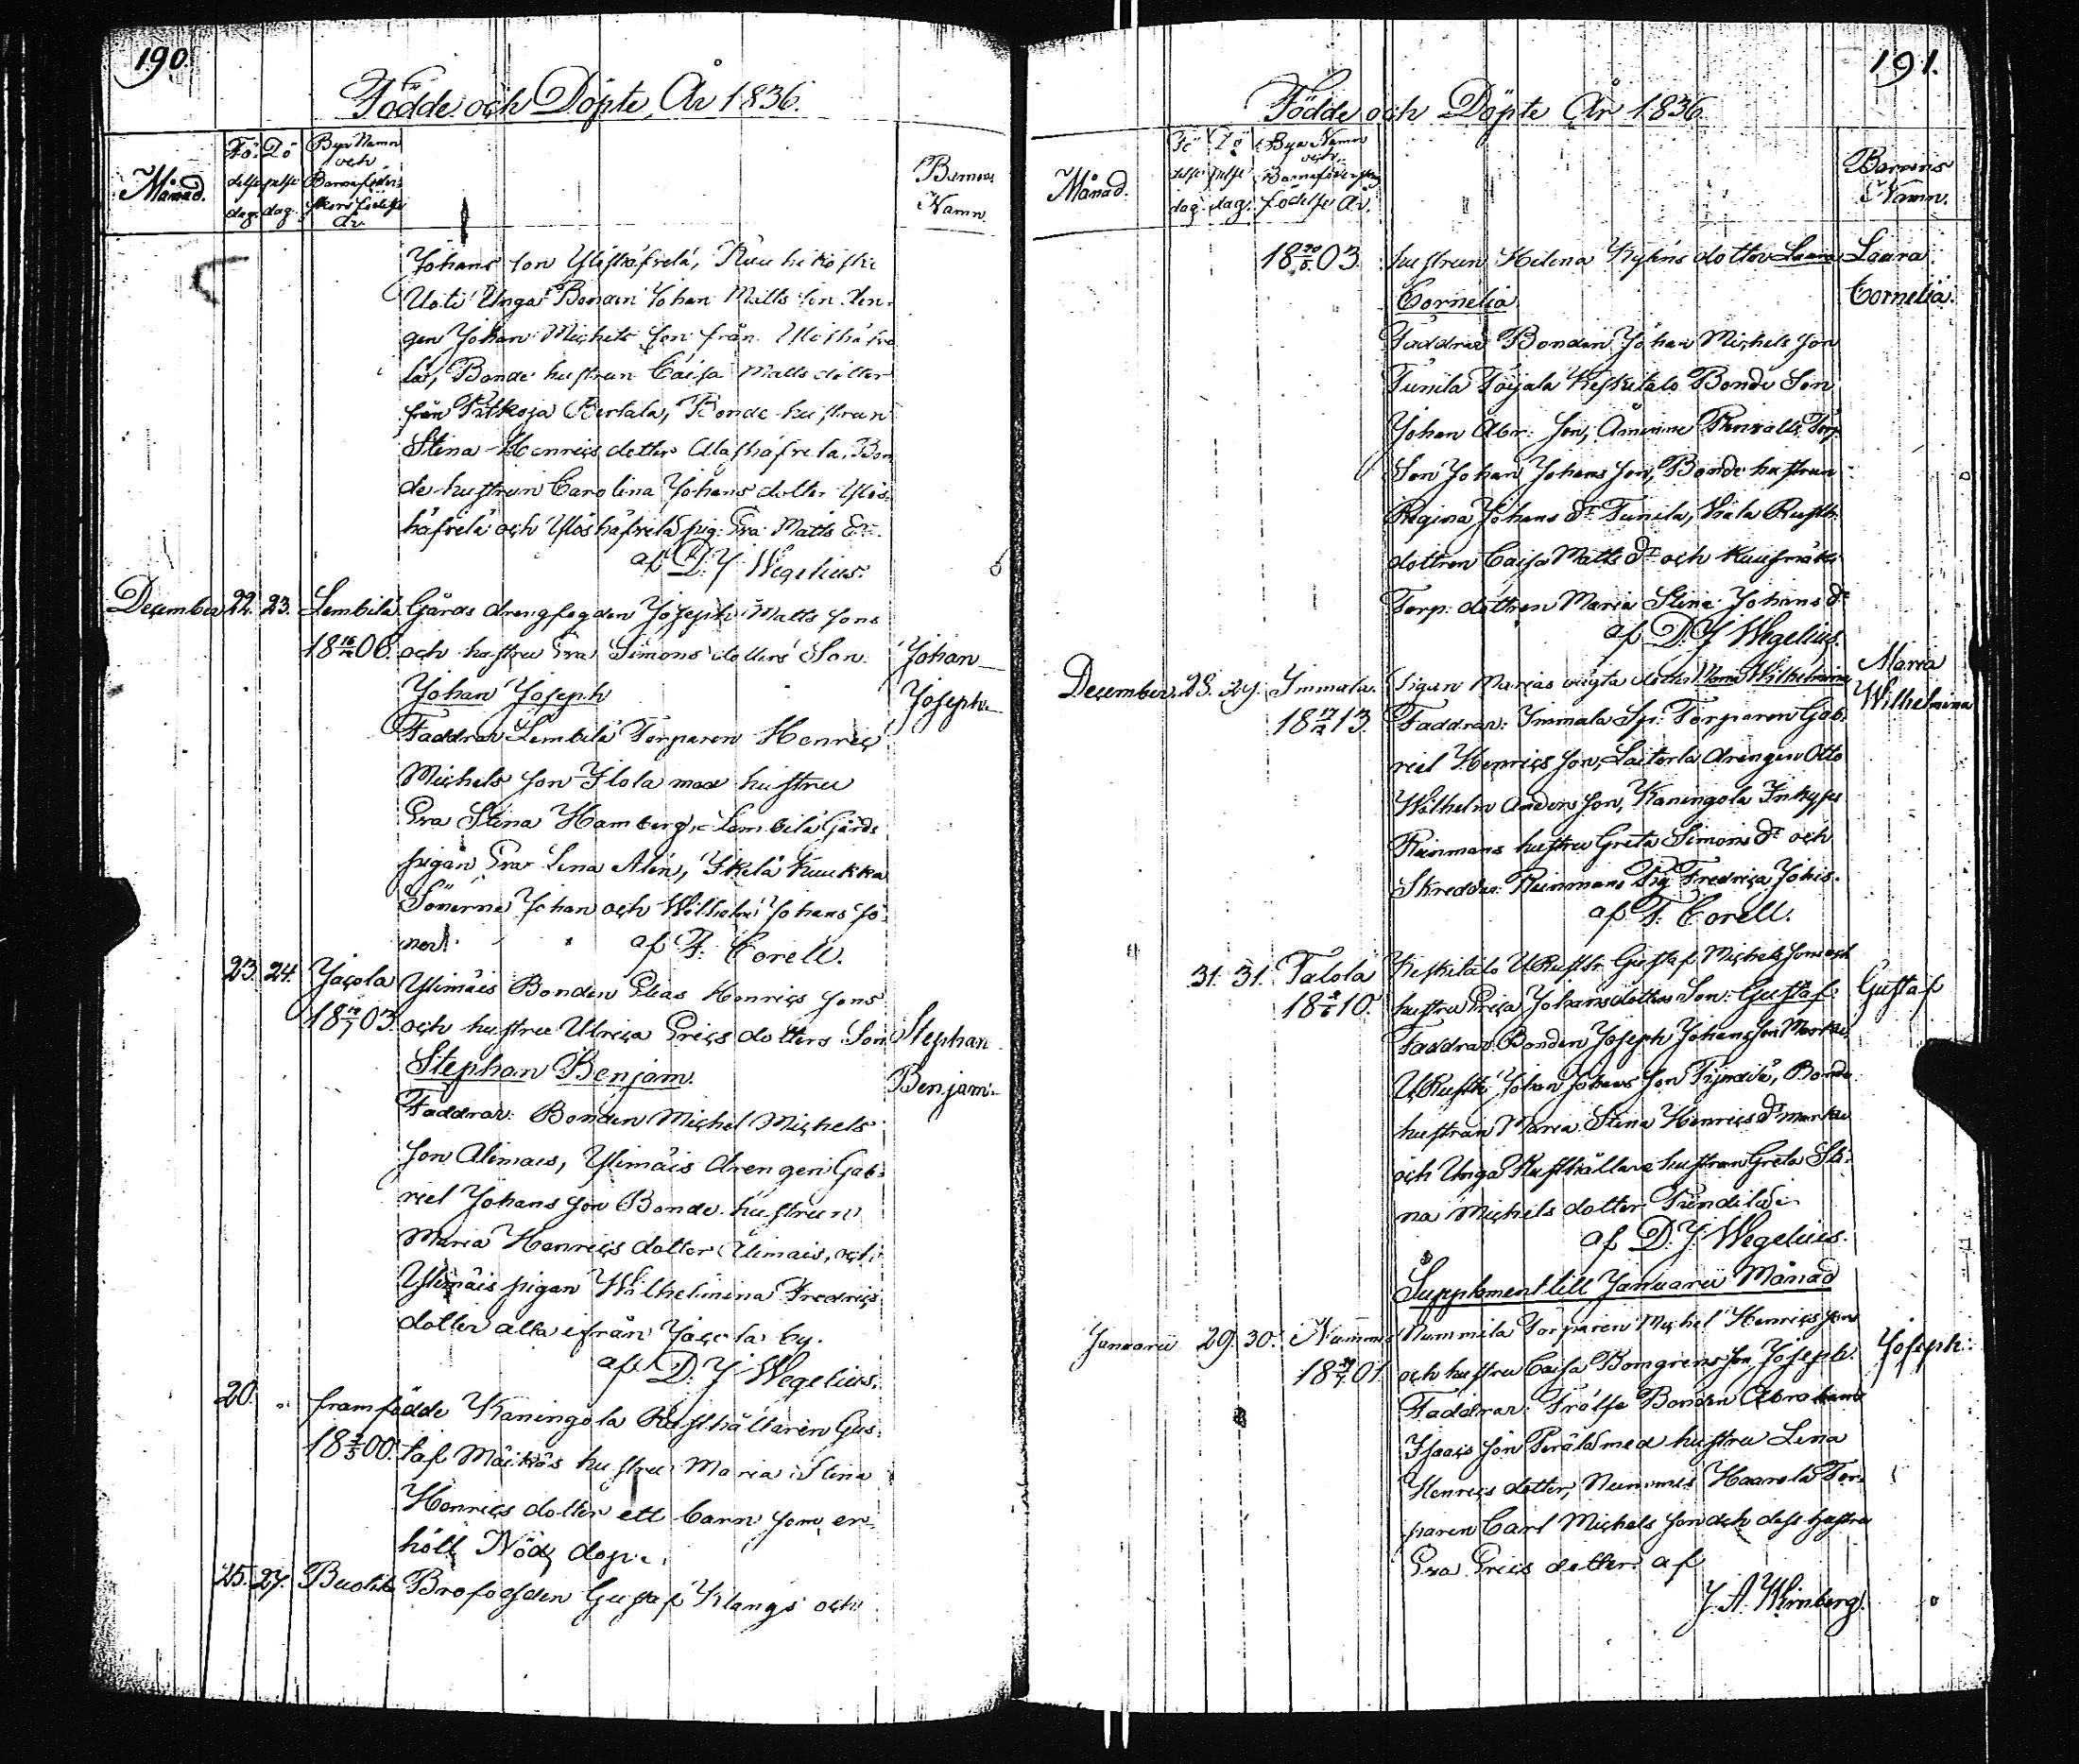 190.
Födde och Döpte År 1836.
Månad.
Fö=
delse
dag.
Dö
pelse
dag.
Bys Namn
och
Barnaföder=
År.
Barnens
Namn.
Johans son Ylishåfvelä,
Uoti Unga Bonden Johan Matts son
gen Johan Michels son från
la, Bonde hustrun Caisa Matts dotter
från Pitkoja Bertala, Bonde hustrun
Stina Henrics dotter Alashåfvela, Bon
de hustrun Carolina Johans dotter Ylis
håfvelä och Ylishåfvelä pig. Eva Matts dr.
af D. J. Wegelius.
December 22. 23. Lembilä Gårds drengfogden Joseph Matts sons
18 16/12 06. och hustru Eva Simons dotters Son Johan
Johan Joseph Joseph.
Faddrar Lembilä Torparen Henric
Michels son Ilola med hustru
Eva Stina Hamberg, Lembilä Gårds
pigan Eva Lena Alen, Ikelä Kuukka
Sönerne Johan och Wilhelm Johans sö=
ner. af F. Corell.
23. 24. Jacola Ylimäis Bonden Elias Henrics sons
18 03. och hustru Ulrica Erics dotters Son Stephan
Stephan Benjam. Benjam.
Faddrar: Bonden Michel Michels
son Alimais, Ylimäis drengen Gab=
riel Johans son Bonde hustrun
Maria Henrics dotter Alimais, och
Ylimäis pigan Wilhelmina Fredrics
dotter alla ifrån Jacola by.
af D. J. Wegelius.
20. " framfödde Kaningola Rusthållaren Gus=
18 00. taf Mäikäs hustru Maria Stina
Henrics dotter ett barn som er=
höll Nöd dop.
25. 27. Brofogden Gustaf Klangs och
191.
Födde och Döpte År 1836.
Månad.
Fö
delse
dag.
Dö
pelse
dag.
Bya Namn
och
Barnaföderskans
födelse År.
Barnens
Namn.
18 03. hustrun Helena Nyhns dotter Laara Laara
Cornelia Cornelia.
Faddrar Bonden Johan Michels son
Tunila Töijala Keskitalo Bonde Son
Johan Abr: son, Torp.
Son Johan Johans son, Bonde hustrun
Regina Johans dr Tunila, Rusth.
dottren Caisa Matts dr och
Torp. dottren Maria Stina Johans dr
af D. J. Wegelius.
December. 28. 29. Immala. Pigan Marias oägta dotter Maria Wilhelmina Maria
Wilhelmina
18 17/12 13. Faddrar: Immala Sp: Torparen Gab=
riel Henrics son, Laiterla drengen Otto
Wilhelm Anders son, Kaningola Inhyses
Reinmans hustru Greta Simons dr och
Skreddar Reinmans Pig Fredrica Johs.
af F. Corell.
31. 31. Talola Keskitalo U.Rusth. Gustaf Michels sons och
18 10. hustru Erica Johansdotters Son Gustaf. Gustaf
Faddrar: Bonden Joseph Johans son
U.Rusth. Johan Johans son Tyndilä, Bonde
hustrun Maria Stina Henrics dr
och Unga Rusthållare hustrun Greta Sti=
na Michels dotter Tundila
af D. J. Wegelius.
Supplement till Januarii Månad
Januarii 29. 30. Nummis Nummila Torparen Michel Henrics sons
18 01. och hustru Caisa Bomgrens son Joseph. Joseph.
Faddrar: Frälse Bonden Abraham
Isaacs son Perälä med hustru Lena
Henrics dotter, Nummis Haarola Tor=
paren Carl Michels son och dess hustru
Eva Erics dotter af
J. A. Wirnberg.